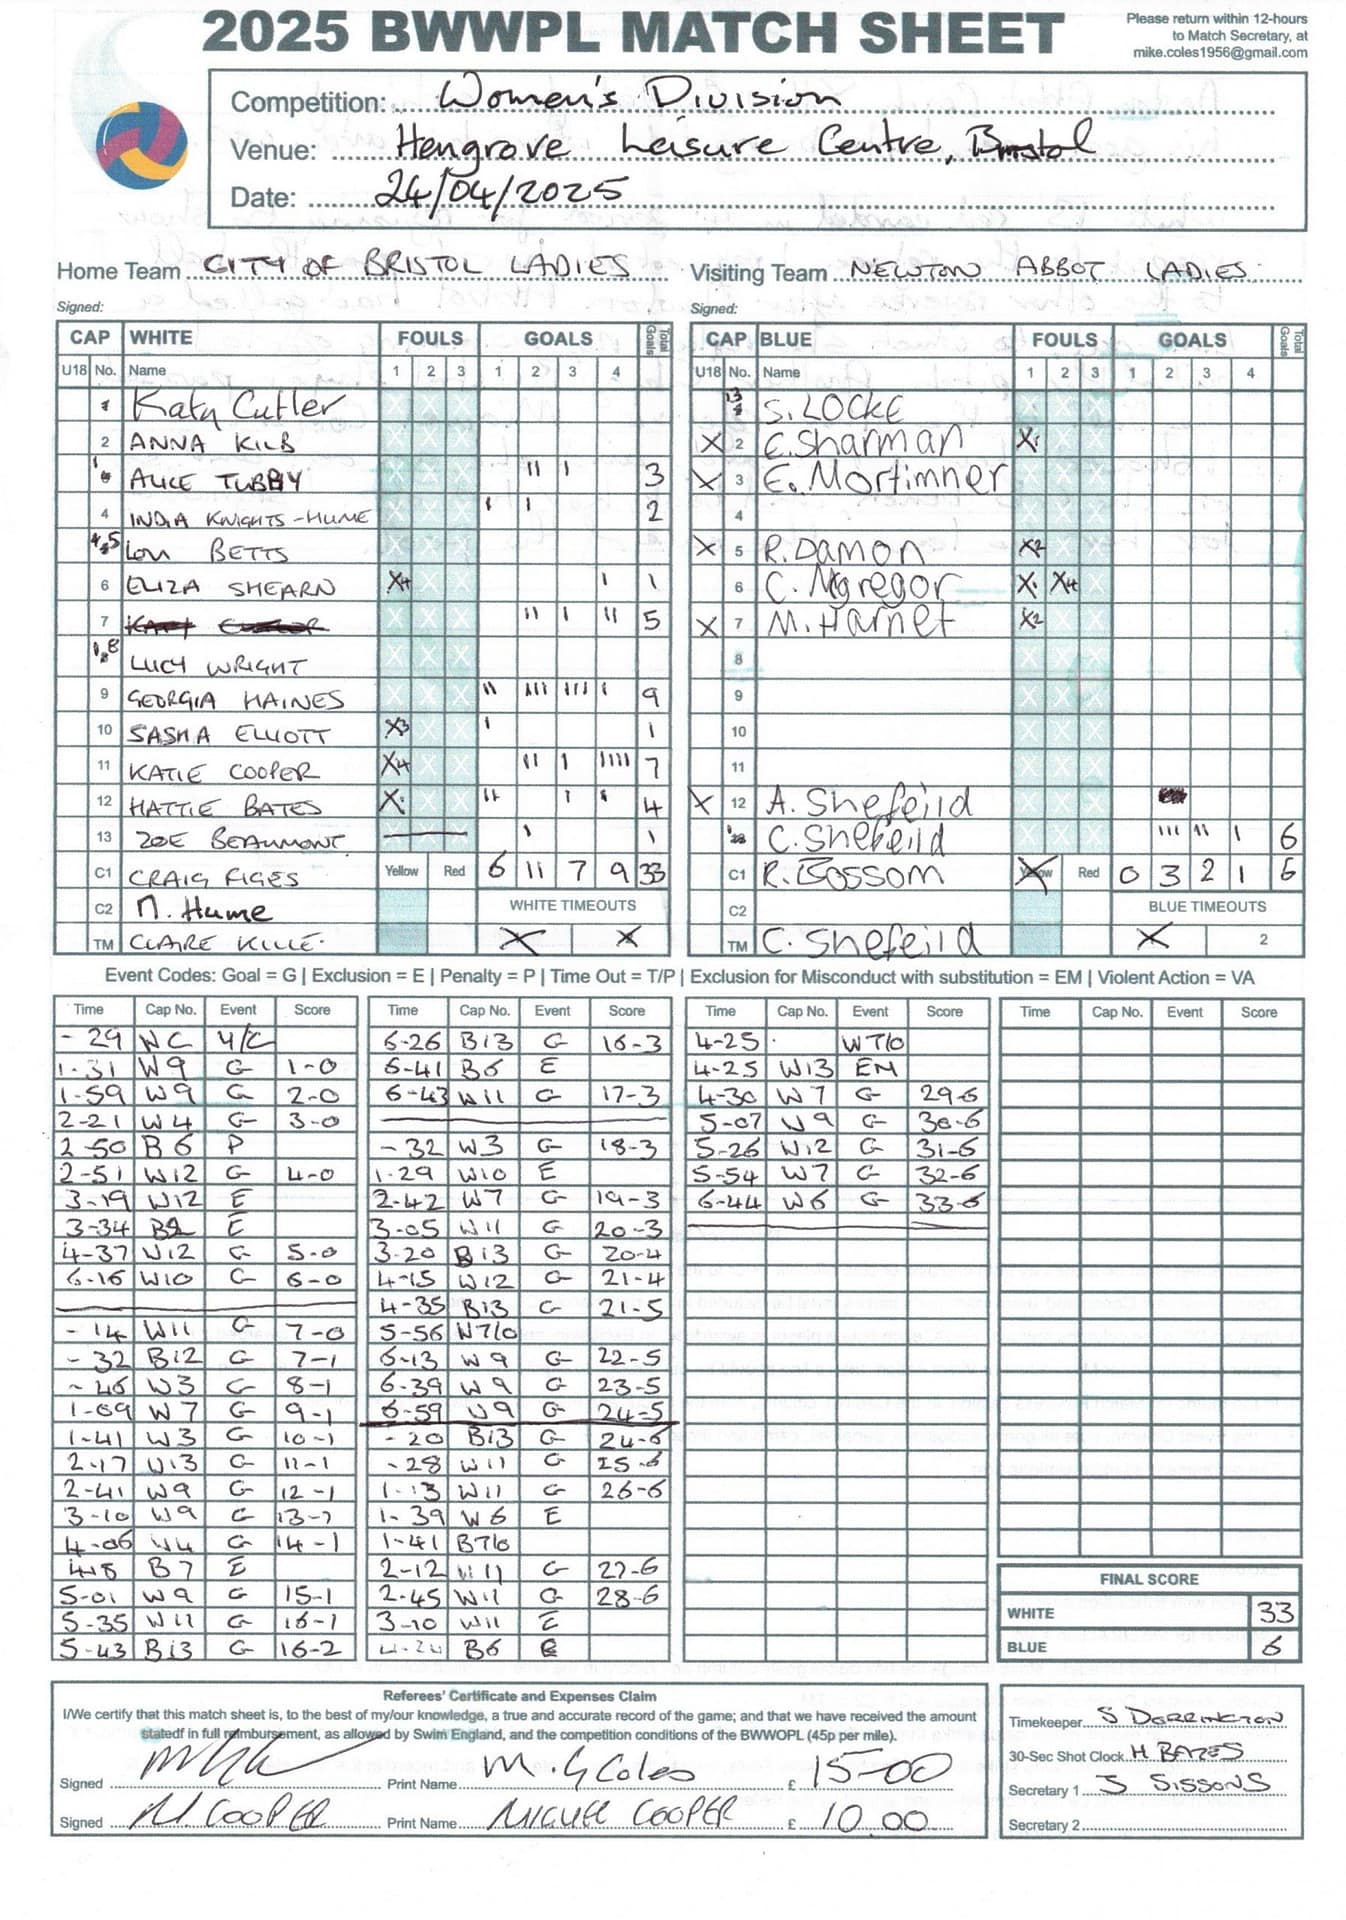 2025 BWWPL MATCH SHEET
Please return within 12-hours
to Match Secretary, at
mike.coles1956@gmail.com
Competition: Women's Division
Venue: Hengrove Leisure Centre, Bristol
Date: 24/04/2025
Home Team CITY OF BRISTOL LADIES
Visiting Team NEWTON ABBOT LADIES
Signed:
Signed:
CAP WHITE FOULS GOALS Total Goals
U18 No. Name 1 2 3 1 2 3 4
Katy Cutler
2 ANNA KILB
ALICE TUBBY II I 3
4 INDIA KNIGHTS-HUME I I 2
5 LOU BETTS
6 ELIZA SHEARN X4 I 1
7 II I II 5
8 LUCY WRIGHT
9 GEORGIA HAINES II III IIII I 9
10 SASHA ELLIOTT X3 I 1
11 KATIE COOPER X4 II I IIII 7
12 HATTIE BATES X1 II I I 4
13 ZOE BEAUMONT I 1
C1 CRAIG FIGES Yellow Red 6 11 7 9 33
C2 M. Hume WHITE TIMEOUTS
TM CLAIRE KILLE X X
CAP BLUE FOULS GOALS Total Goals
U18 No. Name 1 2 3 1 2 3 4
13 S. LOCKE
X 2 E. Sharman X1
X 3 E. Mortimner
4
X 5 R. Damon X2
6 C. Mgregor X1 X4
X 7 M. Harnet X2
8
9
10
11
X 12 A. Shefeild
C. Shefeild III II I 6
C1 R. Bossom Yellow Red 0 3 2 1 6
C2 BLUE TIMEOUTS
TM C. Shefeild X 2
Event Codes: Goal = G | Exclusion = E | Penalty = P | Time Out = T/P | Exclusion for Misconduct with substitution = EM | Violent Action = VA
Time Cap No. Event Score
- 29 WC Y/C
1-31 W9 G 1-0
1-59 W9 G 2-0
2-21 W4 G 3-0
2-50 B6 P
2-51 W12 G 4-0
3-19 W12 E
3-34 B2 E
4-37 W12 G 5-0
6-16 W10 G 6-0
- 14 W11 G 7-0
- 32 B12 G 7-1
- 46 W3 G 8-1
1-09 W7 G 9-1
1-41 W3 G 10-1
2-17 W13 G 11-1
2-41 W9 G 12-1
3-10 W9 G 13-1
4-06 W4 G 14-1
4-18 B7 E
5-01 W9 G 15-1
5-35 W11 G 16-1
5-43 B13 G 16-2
Time Cap No. Event Score
6-26 B13 G 16-3
6-41 B6 E
6-43 W11 G 17-3
- 32 W3 G 18-3
1-29 W10 E
2-42 W7 G 19-3
3-05 W11 G 20-3
3-20 B13 G 20-4
4-15 W12 G 21-4
4-35 B13 G 21-5
5-56 WT/O
6-13 W9 G 22-5
6-39 W9 G 23-5
6-59 W9 G 24-5
- 20 B13 G 24-6
- 28 W11 G 25-6
1-13 W11 G 26-6
1-39 W6 E
1-41 BT/O
2-12 W11 G 27-6
2-45 W11 G 28-6
3-10 W11 E
B6 E
Time Cap No. Event Score
4-25 WT/O
4-25 W13 EM
4-30 W7 G 29-6
5-07 W9 G 30-6
5-26 W12 G 31-6
5-54 W7 G 32-6
6-44 W6 G 33-6
Time Cap No. Event Score
FINAL SCORE
WHITE 33
BLUE 6
Referees' Certificate and Expenses Claim
I/We certify that this match sheet is, to the best of my/our knowledge, a true and accurate record of the game; and that we have received the amount
statedf in full reimbursement, as allowed by Swim England, and the competition conditions of the BWWOPL (45p per mile).
Signed Print Name M. G Coles £ 15-00
Signed M. COOPER Print Name MIGUEL COOPER £ 10.00
Timekeeper S DERRINGTON
30-Sec Shot Clock H BATES
Secretary 1 J SISSONS
Secretary 2